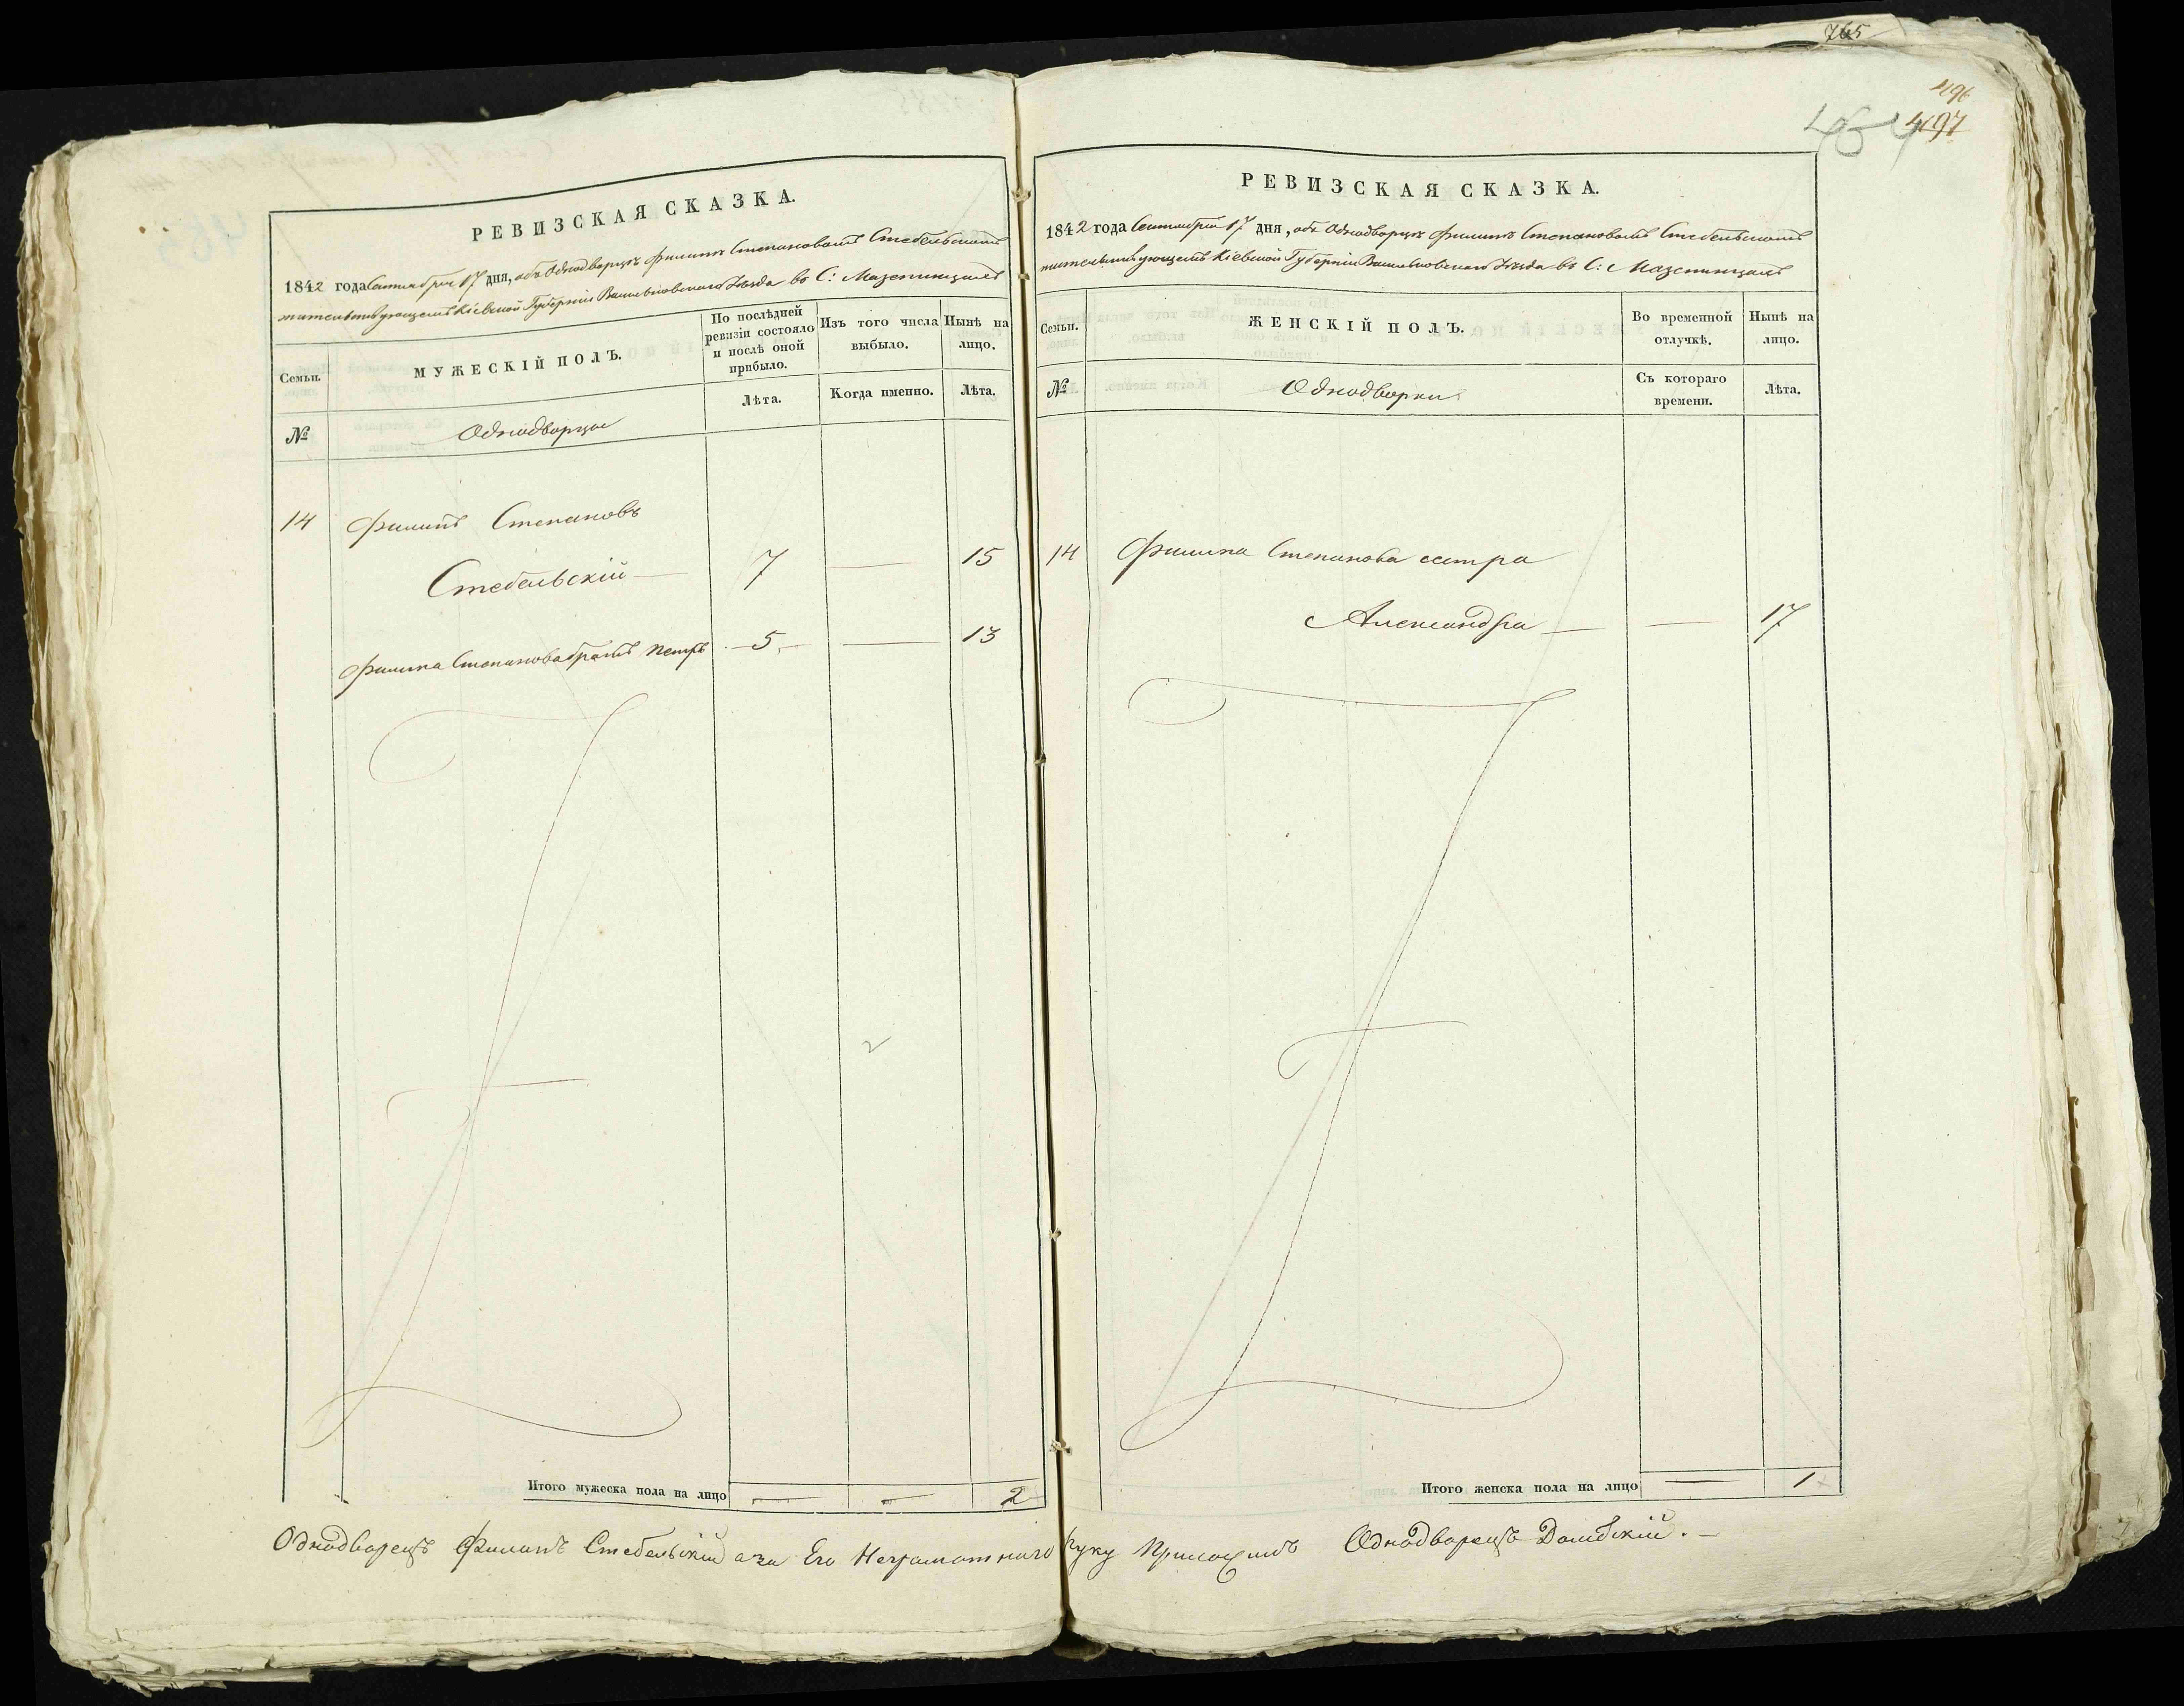 765
496
497
РЕВИЗСКАЯ СКАЗКА.
1842 года Сентября 17 дня, объ Однодворцѣ Филипѣ Степановомъ Стебельскомъ
жительствующемъ Кіевской Губерніи Васильковскаго Уѣзда въ С: Мазепинцахъ
Семьи.
МУЖЕСКІЙ ПОЛЪ.
По послѣдней ревизіи состояло и послѣ оной прибыло.
Изъ того числа выбыло.
Нынѣ на лицо.
№
Однодворцы
Лѣта.
Когда именно.
Лѣта.
14 Филипъ Степановъ
Стебельскій — 7 — 15
Филипа Степанова братъ Петръ — 5 — — 13
2
Итого мужеска пола на лицо — — 2
РЕВИЗСКАЯ СКАЗКА.
1842 года Сентября 17 дня, объ Однодворцѣ Филипѣ Степановомъ Стебельскомъ
жительствующемъ Кіевской Губерніи Васильковскаго Уѣзда въ С: Мазепинцахъ
Семьи.
ЖЕНСКІЙ ПОЛЪ.
Во временной отлучкѣ.
Нынѣ на лицо.
№
Однодворки
Съ котораго времени.
Лѣта.
14 Филипа Степанова сестра
Александра — — 17
Итого женска пола на лицо — 1
Однодворецъ Филипъ Стебельскій а за Его Неграмотнаго руку Приложилъ Однодворецъ